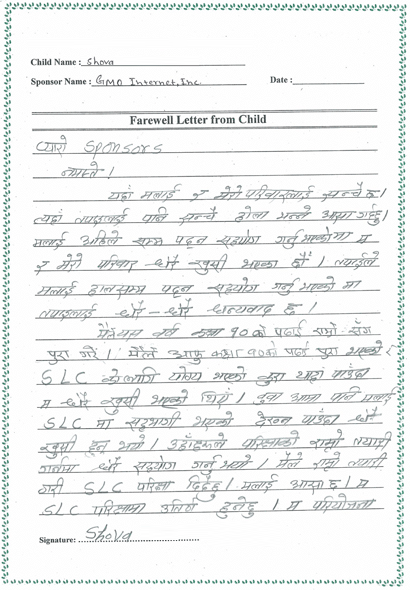 Child Name : Shova
Sponsor Name : GMO Internet, Inc. Date :
Farewell Letter from Child
प्यारो Sponsors
नमस्ते ।
यहाँ मलाई र मेरो परिवारलाई सन्चै छ ।
त्यहाँ तपाईलाई पनि सन्चै होला भन्ने आशा गर्दछु ।
मलाई अहिले सम्म पढ्न सहयोग गर्नु भएकोमा म
र मेरो परिवार धेरै खुसी भएका छौं । तपाईले
मलाई हाल सम्म पढ्न सहयोग गर्नु भएको मा
तपाइलाई धेरै - धेरै धन्यवाद छ ।
मैले यस वर्ष कक्षा १० को पढाई राम्रो सँग
पुरा गरें । मैले आफु कक्षा १० को पढाई पुरा भएको र
SLC को लागि योग्य भएको कुरा थाहा पाउँदा
म धेरै खुसी भएको थिएँ । बुवा आमा पनि मलाई
SLC मा सहभागी भएको देख्न पाउँदा धेरै
खुसी हुनु भयो । उहाँहरूले परिक्षाको राम्रो तयारी
गर्नमा धेरै सहयोग गर्नु भयो । मैले राम्रो तयारी
गरी SLC परिक्षा दिँदैछु । मलाई आशा छ । म
SLC परिक्षामा उतिर्ण हुनेछु । म परियोजना
Signature: Shova